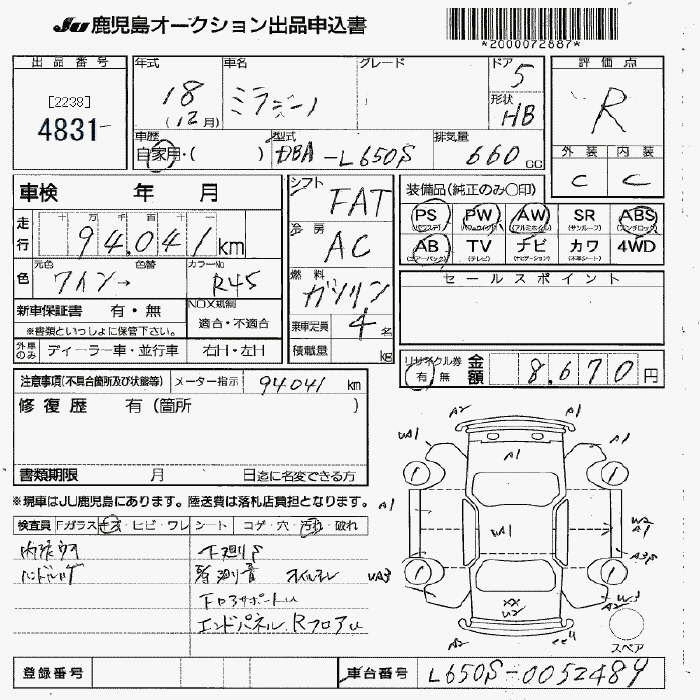 JU 鹿児島オークション出品申込書
*2000072887*
出品番号
[2238]
4831
年式 18 (12月)
車名 ミラジーノ
グレード
ドア 5
形状 HB
評価点 R
外装 C
内装 C
車歴 自家用・( )
型式 DBA-L650S
排気量 660 CC
車検 年 月
走行 十万千百十一
94,041 km
元色 ワイン→
色替
カラーNo R45
色
シフト FAT
冷房 AC
燃料 ガソリン
乗車定員 4 名
積載量 kg
装備品(純正のみ〇印)
PS (パワステ) PW (パワーウインド) AW (アルミホイル) SR (サンルーフ) ABS (アンチロック)
AB (エアーバック) TV (テレビ) ナビ (ナビゲーション) カワ (本革シート) 4WD
セールスポイント
新車保証書 有・無
※書類といっしょに保管下さい。
NOX規制
適合・不適合
外車のみ ディーラー車・並行車 右H・左H
リサイクル券 有 無
金額 8,670 円
注意事項(不具合箇所及び状態等) メーター指示 94041 km
修復歴 有(箇所 )
書類期限 月 日迄に名変できる方
※現車はJU鹿児島にあります。陸送費は落札店負担となります。
検査員 Fガラス キズ・ヒビ・ワレ シート コゲ・穴・汚れ・破れ
下廻りS
オイルモレ
エンドパネル.RフロアU
A2
A1
UA1
A1
A1
A1
UA1
W2
A1
UA3
XX
U2
A2
A2
スペア
登録番号
車台番号 L650S-0052489